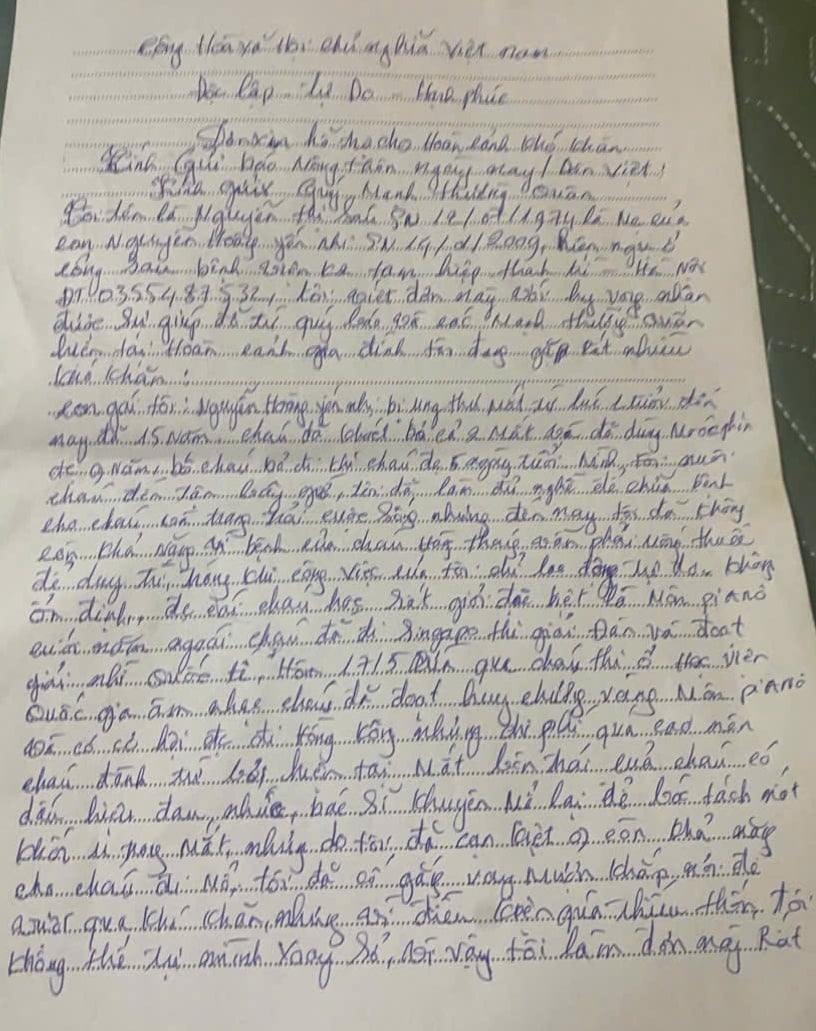 Cộng Hoà xã Hội chủ nghĩa Việt nam
Độc lập - Tự Do - Hạnh phúc
Đơn xin hỗ trợ cho Hoàn cảnh khó khăn
Kính Gửi báo Nông thôn ngày nay / Dân Việt!
Kính gửi Quý Mạnh thường Quân
Tôi tên là Nguyễn thị SN 1974 là Mẹ của
con Nguyễn Hoàng yến nhi SN 2009, hiện ngụ ở
cổng sau bình tam hiệp thanh trì - Hà Nội
ĐT 0355487532, tôi viết đơn này với hy vọng nhận
được sự giúp đỡ từ quý báo và các Mạnh thường Quân
hiện tại Hoàn cảnh gia đình tôi đang gặp rất nhiều
khó khăn!
con gái tôi: Nguyễn Hoàng yến nhi bị ung thư Mắt từ lúc 1 tuổi đến
nay đã 15 Năm, cháu đã khoét bỏ cả 2 Mắt và đã dùng
9 năm, bố cháu bỏ đi khi cháu 5 ngày tuổi. Mình tôi nuôi
cháu đến tận bây giờ, tôi đã làm đủ nghề để chữa bệnh
cho cháu trang trải cuộc sống nhưng đến nay tôi đã không
còn khả năng vì bệnh của cháu hàng tháng vẫn phải uống thuốc
để duy trì, trong khi công việc của tôi chỉ lao động tự do, không
ổn định, cháu học rất giỏi đặc biệt là Môn piano
cuối năm ngoái cháu đã đi Singapo thi giải Đàn và đoạt
giải nhì Quốc tế, Hôm 17/5 qua cháu thi ở Học viện
Quốc gia âm nhạc cháu đã đoạt huy chương vàng Môn piano
và có cơ hội đi Hồng Kông nhưng chi phí quá cao nên
cháu đành từ bỏ, hiện tại Mắt bên trái của cháu có
dấu hiệu đau, nhức, bác sĩ khuyên Mổ lại để bóc tách một
khối u trong Mắt, nhưng do tôi đã cạn kiệt còn khả năng
cho cháu đi Mổ, tôi đã cố gắng vay mượn khắp nơi để
vượt qua khó khăn, nhưng vì tiền quá thiếu thốn, tôi
không thể tự mình xoay sở, vì vậy tôi làm đơn này Rất